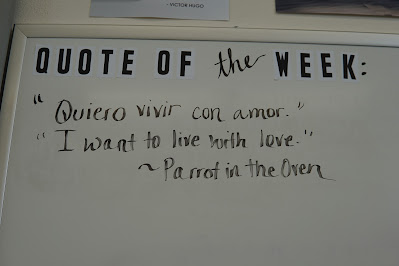 - VICTOR HUGO
QUOTE OF the WEEK:
"Quiero vivir con amor."
"I want to live with love."
~ Parrot in the Oven